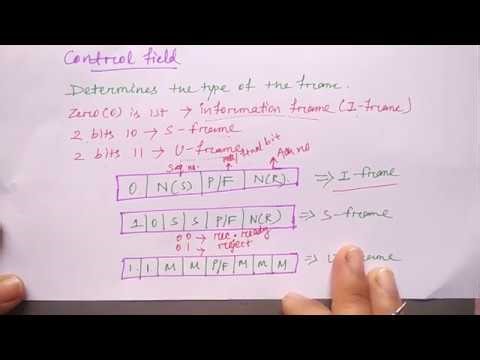 Control field
Determines the type of the frame.
Zero(0) is 1st → information frame (I-frame)
2 bits 10 → S-frame
2 bits 11 → U-frame
Seq no. bit Ack no
0 N(S) P/F N(R) ⇒ I-frame
1 0 S S P/F N(R) ⇒ S-frame
0 0 → rec. ready
0 1 → reject
1 1 M M P/F M M M ⇒